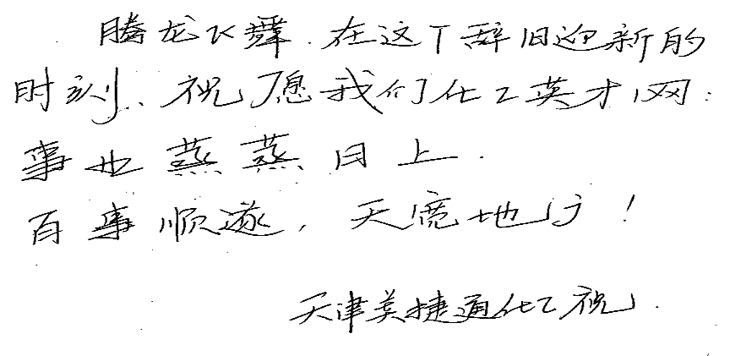 腾龙飞舞.在这个辞旧迎新的
时刻、祝愿我们化工英才网:
事业蒸蒸日上.
百事顺遂,天宽地广!
天津美捷通化工祝.